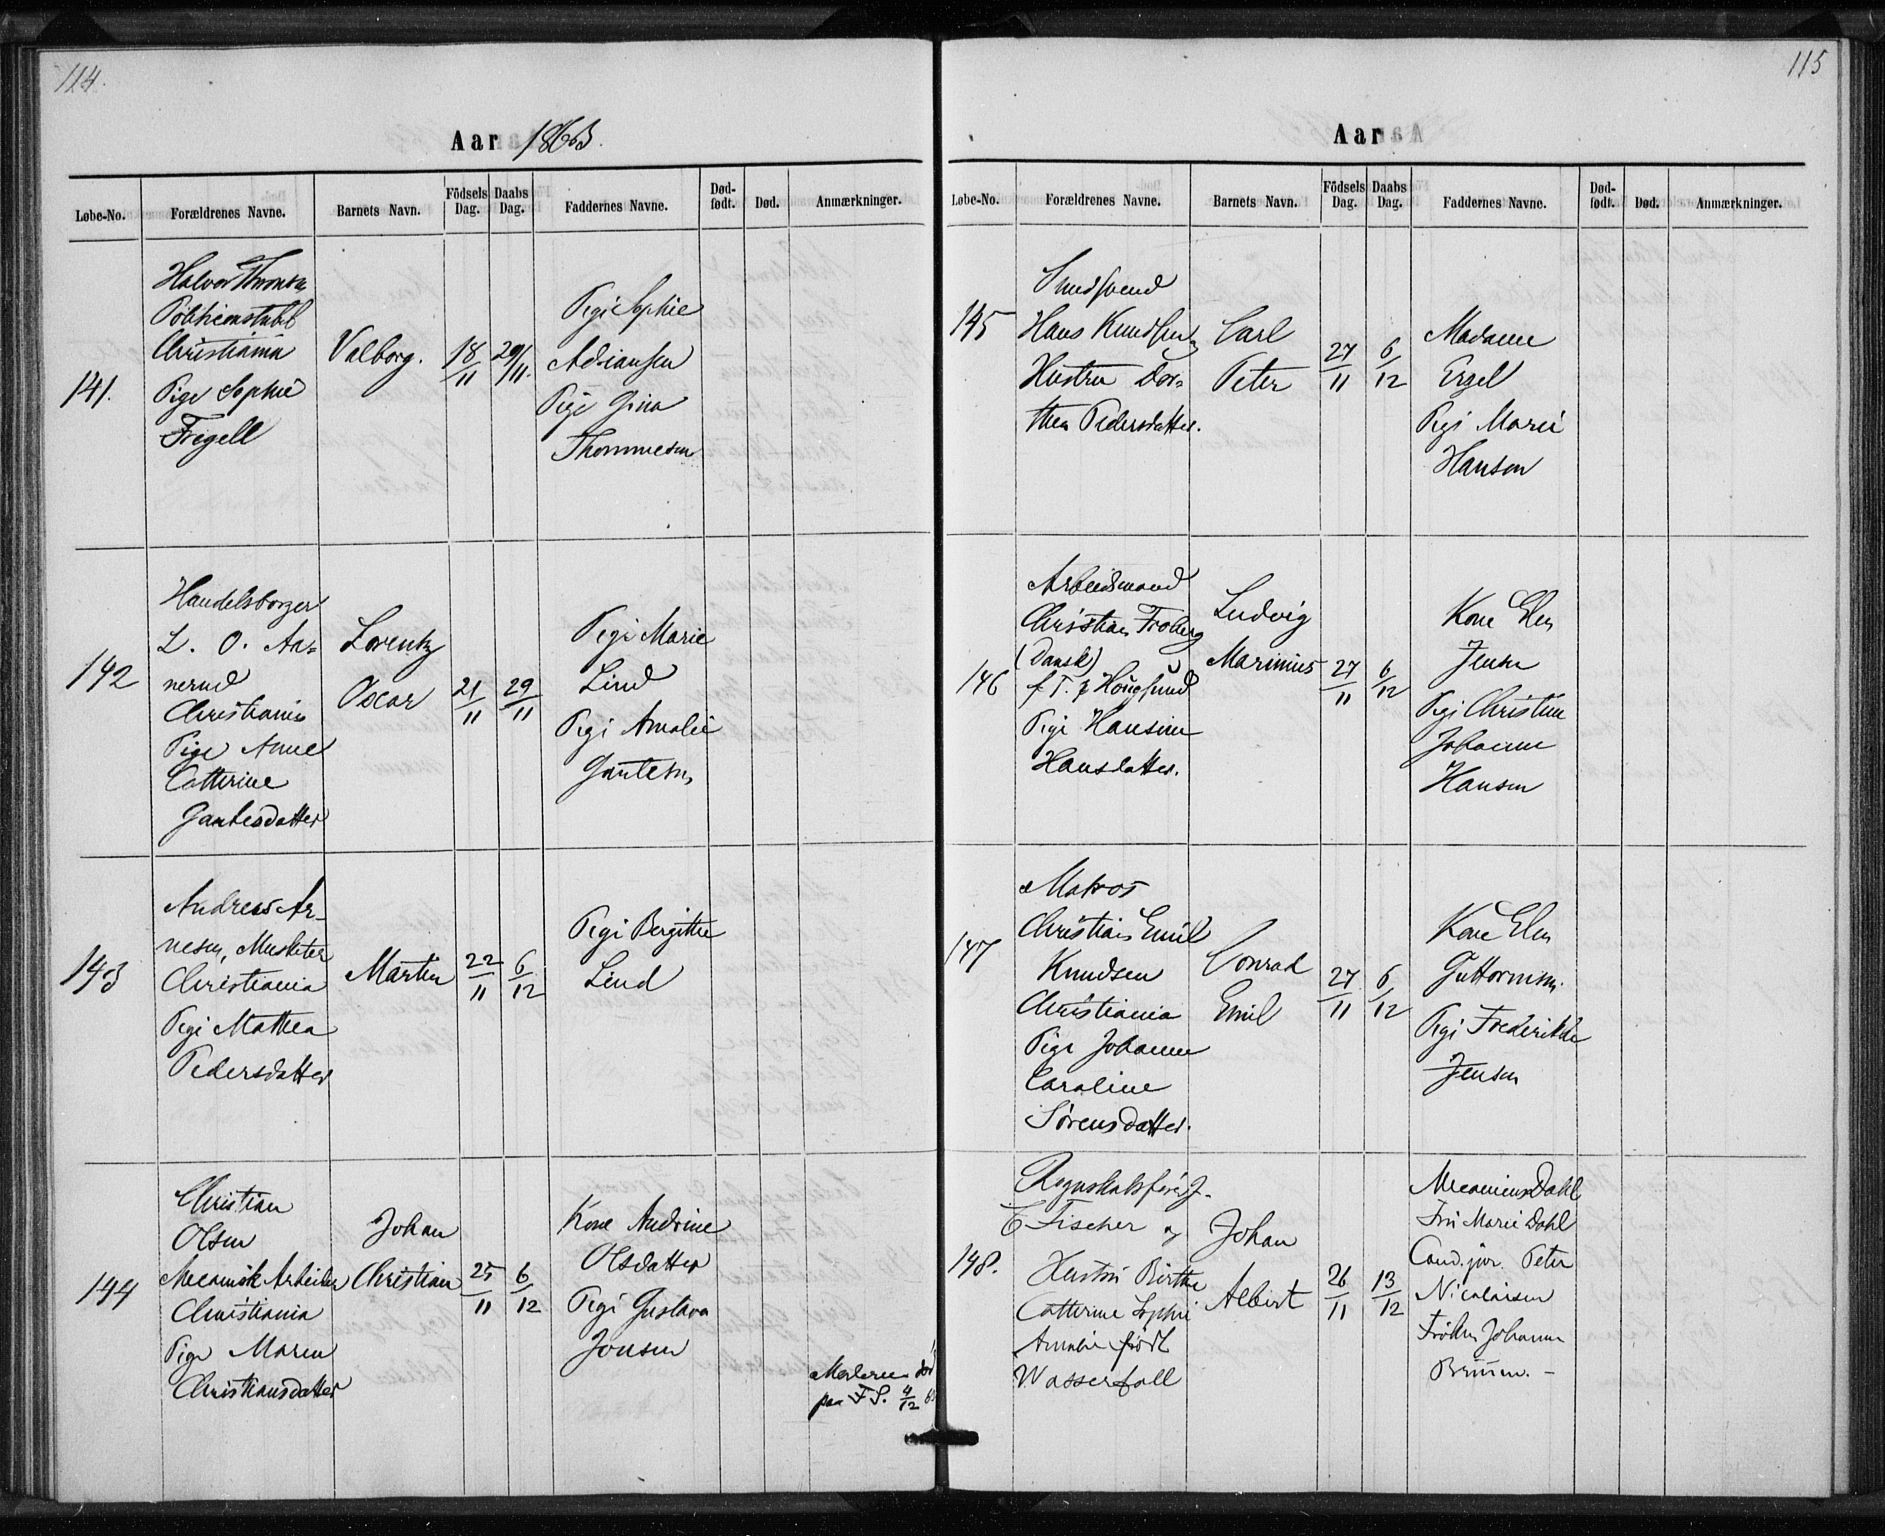 114.
Aar 1863.
Løbe-No. Forældrenes Navne. Barnets Navn. Födsels Dag. Daabs Dag. Faddernes Navne. Død-født. Død. Anmærkninger.
141.
Halvor
Christiania
Pige Sophie
Fregell
Valborg.
18/11
29/11.
Pige Sophie
Adriansen
Pige Gina
Thommesen
142
Handelsborger
L. O. Aa-
nerud
Christiania
Pige Anne
Catterine
Gantesdatter
Lorentz
Oscar
21/11
29/11
Pige Marie
Lind
Pige Amalie
Gantesen
143
Andreas Ar-
nesen, Musketer
Christiania
Pige Mathea
Pedersdatter
Martin
22/11
6/12
Pige Bergitte
Lind
144
Christian
Olsen
Mecanisk Arbeider
Christiania
Pige Maren
Christiansdatter
Johan
Christian
25/11
6/12
Kone Andrine
Olsdatter
Pige Gustava
Jonsen
Moderen død
paa F. S. 4/12
115
Aar
Løbe-No. Forældrenes Navne. Barnets Navn. Födsels Dag. Daabs Dag. Faddernes Navne. Død-født. Død. Anmærkninger.
145
Smedsvend
Hans Knudsen
Hustru Dor-
thea Pedersdatter.
Carl
Peter
27/11
6/12
Madame
Engel
Pige Marie
Hansen
146
Arbeidsmand
Christian Froberg
(Dansk)
f. T. p Hougsund
Pige Hansine
Hansdatter.
Ludvig
Marinius
27/11
6/12
Kone Elen
Jensen
Pige Christine
Johanne
Hansen
147
Matros
Christian Emil
Knudsen
Christiania
Pige Johanne
Caroline
Sörensdatter.
Conrad
Emil
27/11
6/12
Kone Elen
Guttormsen.
Pige Frederikke
Jensen
148.
Regnskabsfører J.
C Fischer og
Hustru Birthe
Catterine Sophie
Amalie född
Wasserfall
Johan
Albert
26/11
13/12
Mecanicus Dahl
Fru Marie Dahl
Cand. jur. Peter
Nicolaisen
Fröken Johanne
Bruun. -